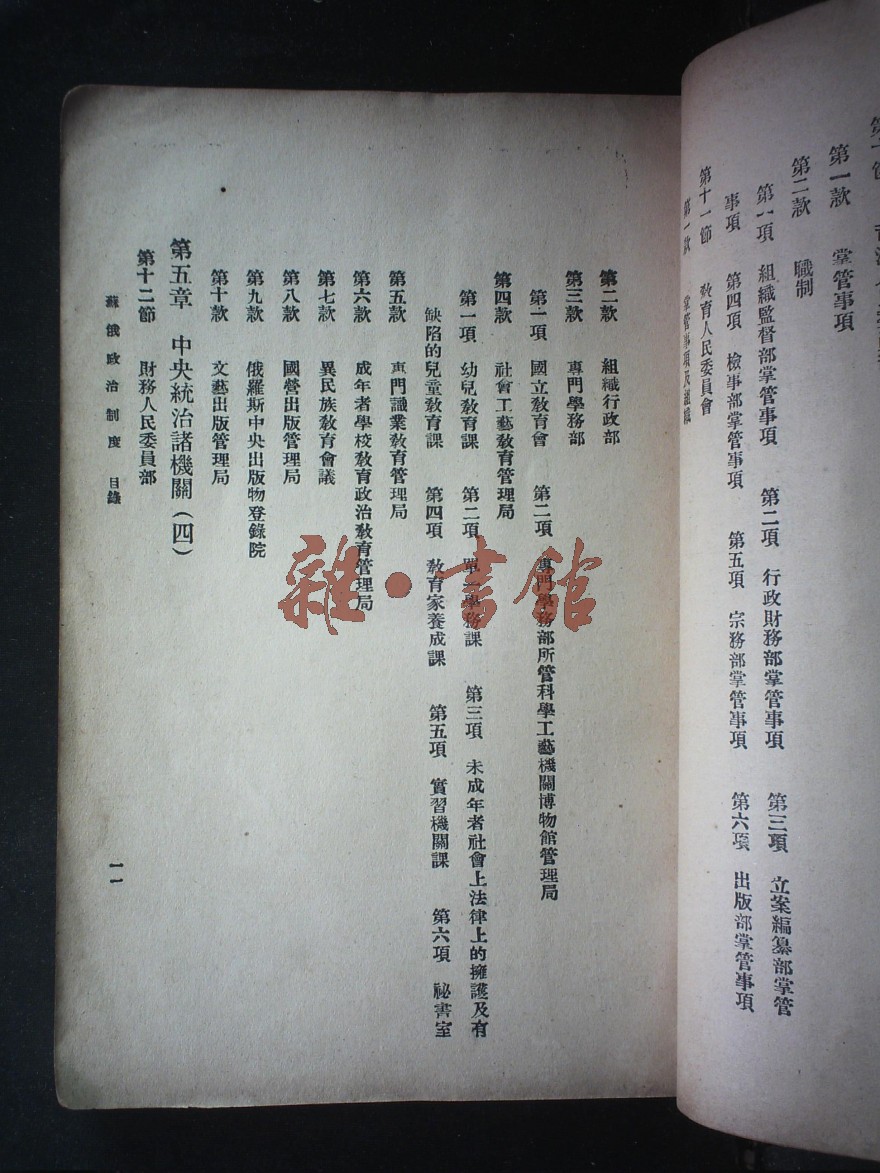 第一款 掌管事項
第二款 職制
第一項 組織監督部掌管事項 第二項 行政財務部掌管事項 第三項 立案編纂部掌管
事項 第四項 檢事部掌管事項 第五項 宗務部掌管事項 第六項 出版部掌管事項
第十一節 教育人民委員會
第一款 掌管事項及組織
第二款 組織行政部
第三款 專門學務部
第一項 國立教育會 第二項 專門學務部所管科學工藝機關博物館管理局
第四款 社會工藝教育管理局
第一項 幼兒教育課 第二項 單一學務課 第三項 未成年者社會上法律上的擁護及有
缺陷的兒童教育課 第四項 教育家養成課 第五項 實習機關課 第六項 祕書室
第五款 專門識業教育管理局
第六款 成年者學校教育政治教育管理局
第七款 異民族教育會議
第八款 國營出版管理局
第九款 俄羅斯中央出版物登錄院
第十款 文藝出版管理局
第五章 中央統治諸機關(四)
第十二節 財務人民委員部
蘇俄政治制度 目錄
一一
雜·書館